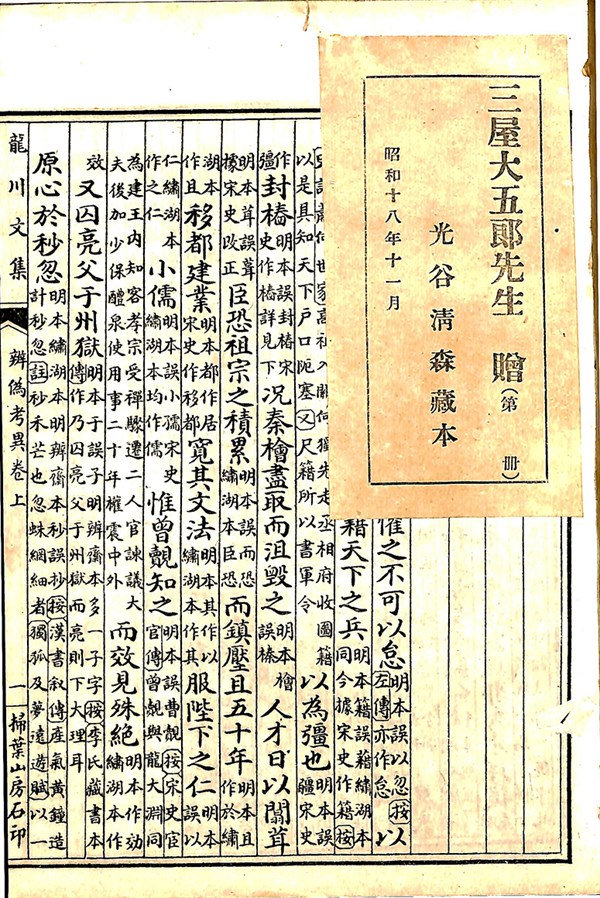 三屋大五郎先生 贈（第 冊）
光谷清森藏本
昭和十八年十一月
之不可以怠明本誤以忽按左傳亦作怠以
籍天下之兵明本籍誤藉繡湖本同今據宋史作籍按
世家高祖入關何獨先走丞相府收圖籍以是具知天下戶口阨塞又尺籍所以書軍令以為彊也明本誤疆宋史
作彊封樁明本誤封椿宋史作樁詳見下况秦檜盡取而沮毀之明本檜誤人才日以闒茸
明本茸誤葺據宋史改正臣恐祖宗之積累明本誤而恐繡湖本臣恐而鎮壓且五十年明本且作於繡
湖本作且移都建業明本都作居宋史作移都寬其文法明本其作以繡湖本作其服陛下之仁明本誤以
仁繡湖本作之仁小儒明本誤小孺宋史繡湖本均作儒惟曾覿知之明本誤曹覿按宋史宦官傳曾覿與龍大淵同
為建王內知客孝宗受禪驟遷二人官諫議大夫後加少保醴泉使用事二十年權震中外而效見殊絕明本作効繡湖本作
效又囚亮父于州獄明本于誤子明辨齋本多一子字按李氏藏書本傳作乃囚亮父于州獄而亮則下大理耳
原心於秒忽明本繡湖本明辨齋本秒誤抄按漢書叙傳產氣黃鐘造計秒忽註秒禾芒也忽蛛網細者獨孤及夢遠遊賦以一
龍川文集 辨偽考異卷上 一 掃葉山房石印